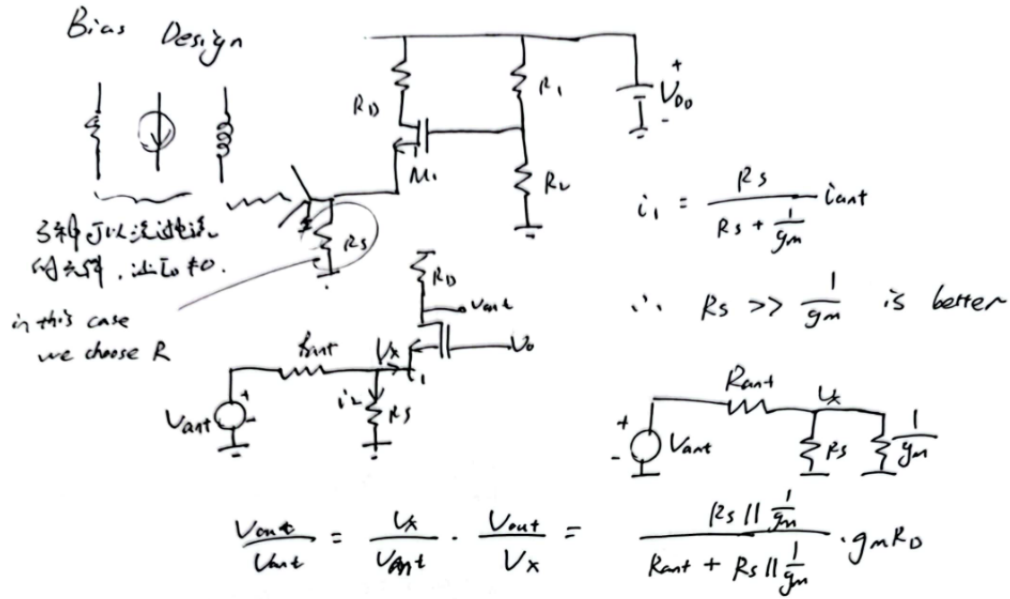 Bias Design
R_D
R_1
+
V_DD
-
M_1
R_2
R_S
3种可以流过电流
的元件，让I_D≠0.
in this case
we choose R
i_1 = R_S / (R_S + 1/g_m) i_ant
∴ R_S >> 1/g_m is better
R_D
V_out
R_ant
V_x
V_b
i_1
+
V_ant
-
i_2
R_S
R_ant
V_x
+
V_ant
-
R_S
1/g_m
V_out/V_ant = V_x/V_ant · V_out/V_x = (R_S || 1/g_m) / (R_ant + R_S || 1/g_m) · g_m R_D